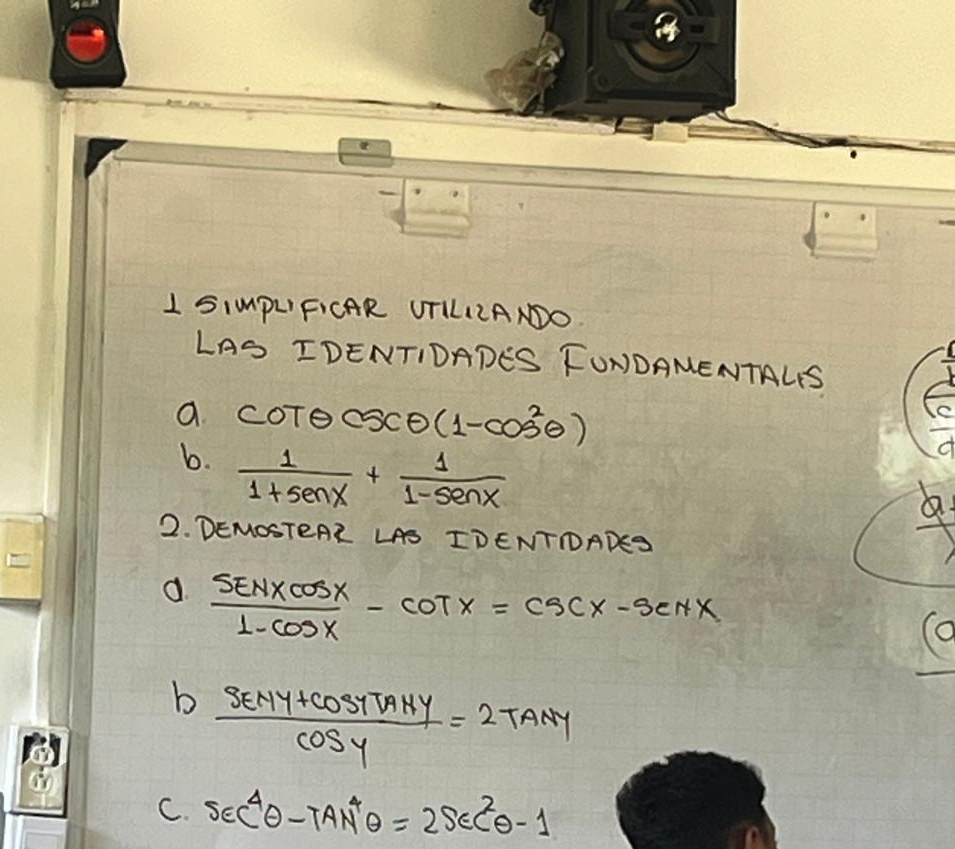 1 SIMPLIFICAR UTILIZANDO.
LAS IDENTIDADES FUNDAMENTALES
a. COTθ CSCθ(1-COS²θ)
b. 1/(1+senx) + 1/(1-senx)
2. DEMOSTRAR LAS IDENTIDADES
a. (SENXCOSX)/(1-COSX) - COTX = CSCX-SENX
b (SENY+COSYTANY)/(COSY) = 2TANY
C. SEC⁴θ-TAN⁴θ = 2SEC²θ-1